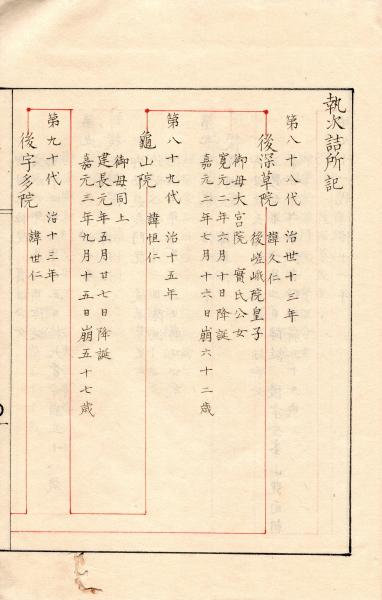 執次詰所記
第八十八代 治世十三年
諱久仁
後深草院 後嵯峨院皇子
御母大宮院 實氏公女
寛元二年六月十日降誕
嘉元二年七月十六日崩六十二歳
第八十九代 治十五年
諱恒仁
龜山院
御母同上
建長元年五月廿七日降誕
嘉元三年九月十五日崩五十七歳
第九十代 治十三年
諱世仁
後宇多院